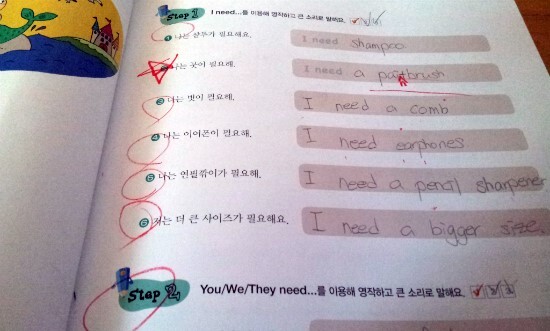 Step 1 I need...를 이용해 영작하고 큰 소리로 말해요.
1 나는 샴푸가 필요해요. I need shampoo
나는 붓이 필요해. I need a paintbrush
3 나는 빗이 필요해. I need a comb
4 나는 이어폰이 필요해. I need earphones
5 나는 연필깎이가 필요해. I need a pencil sharpener
6 저는 더 큰 사이즈가 필요해요. I need a bigger size.
Step 2 You/We/They need...를 이용해 영작하고 큰 소리로 말해요.